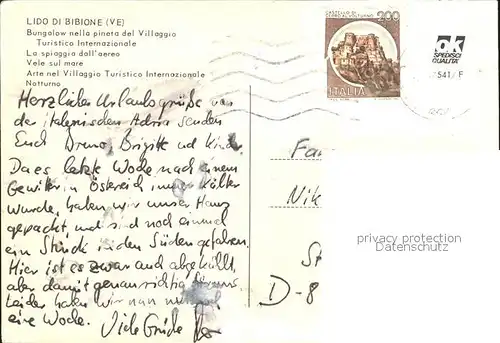 LIDO DI BIBIONE (VE)
Bungalow nella pineta del Villaggio
Turistico Internazionale
La spiaggia dall'aereo
Vele sul mare
Arte nel Villaggio Turistico Internazionale
Notturno
CASTELLO DI
CERRO AL VOLTURNO
200
ITALIA
OK
SPEDISCI
QUALITA'
Herzliche Urlaubsgrüße von
der italienischen Adria senden
Euch Bruno, Brigitte und Kinder.
Da es letzte Woche nach einem
Gewitter in Östereich immer kälter
wurde, haben wir unser Haus
gepackt, und sind noch einmal
ein Stück in den Süden gefahren.
Hier ist es zwar auch abgekühlt,
aber damit genau richtig für uns.
Leider haben wir nun nur noch
eine Woche. Viele Grüße
Fa
Nik
St
D-8
privacy protection
Datenschutz